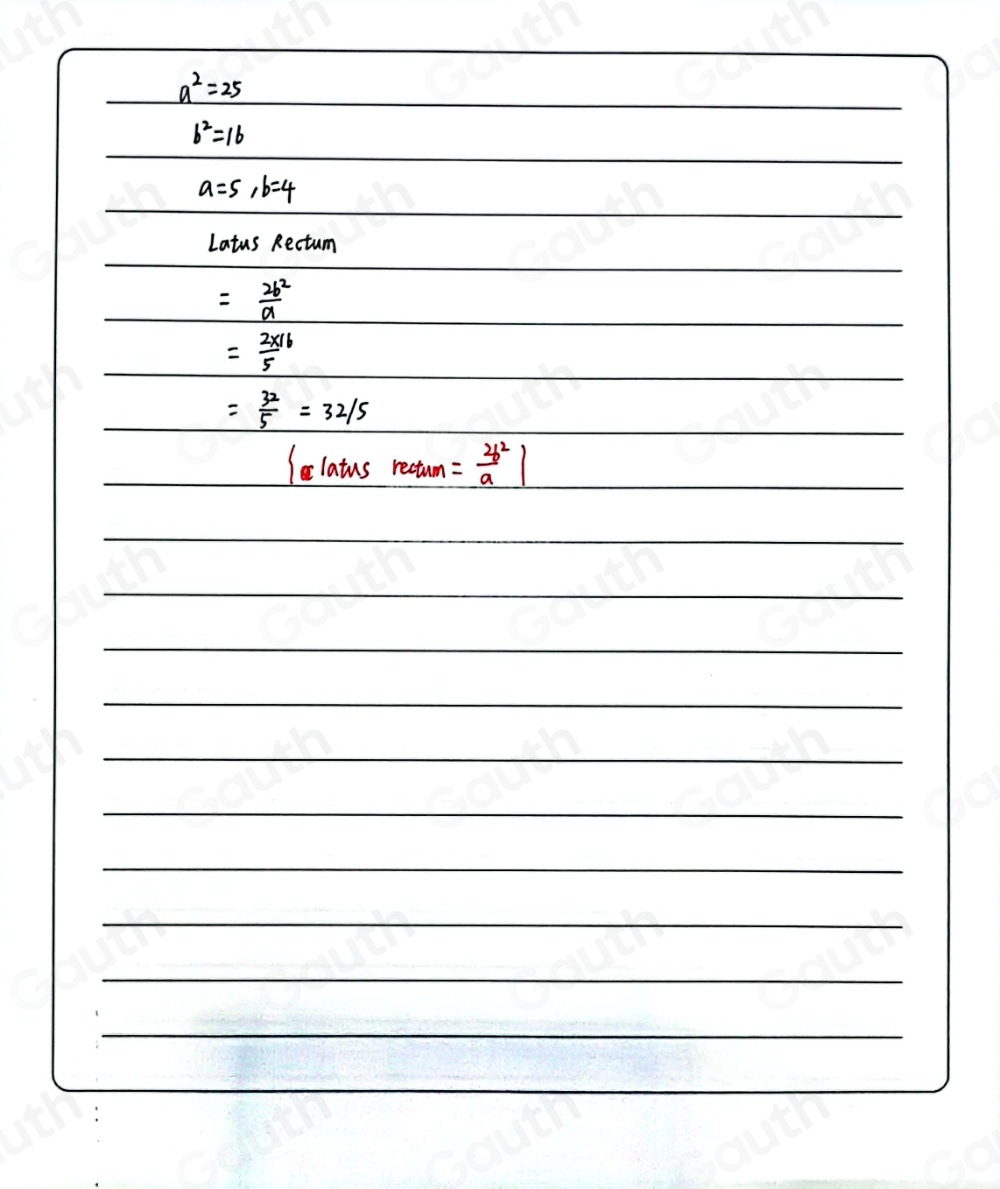 a²=25
b²=16
a=5, b=4
Latus Rectum
= 2b²/a
= 2×16/5
= 32/5 = 32/5
latus rectum = 2b²/a
Gauth